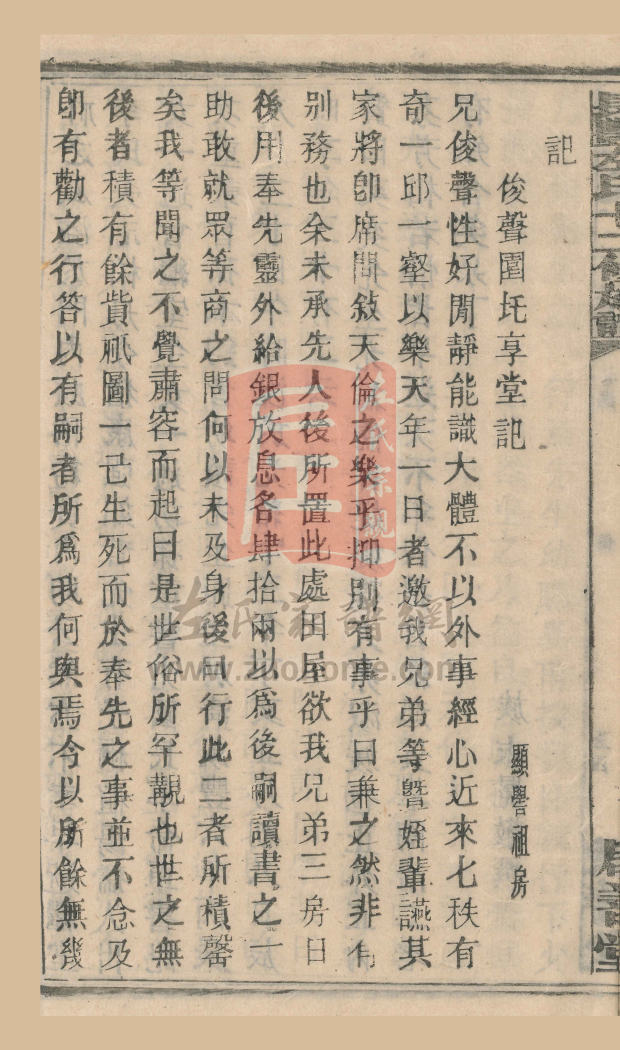 記
俊聲園圫享堂記
顯譽祖房
兄俊聲性好閒靜能識大體不以外事經心近來七秩有
奇一邱一壑以樂天年一日者邀我兄弟等暨姪輩讌其
家將卽席間敍天倫之樂乎抑別有事乎曰兼之然非有
別務也余未承先人後所置此處田屋欲我兄弟三房日
後用奉先靈外給銀放息各肆拾兩以爲後嗣讀書之一
助敢就眾等商之問何以未及身後曰行此二者所積罄
矣我等聞之不覺肅容而起曰是世俗所罕覯也世之無
後者積有餘貲祇圖一己生死而於奉先之事並不念及
卽有勸之行答以有嗣者所爲我何與焉今以所餘無幾
善堂
左氏宗譜網
www.zuohome.com